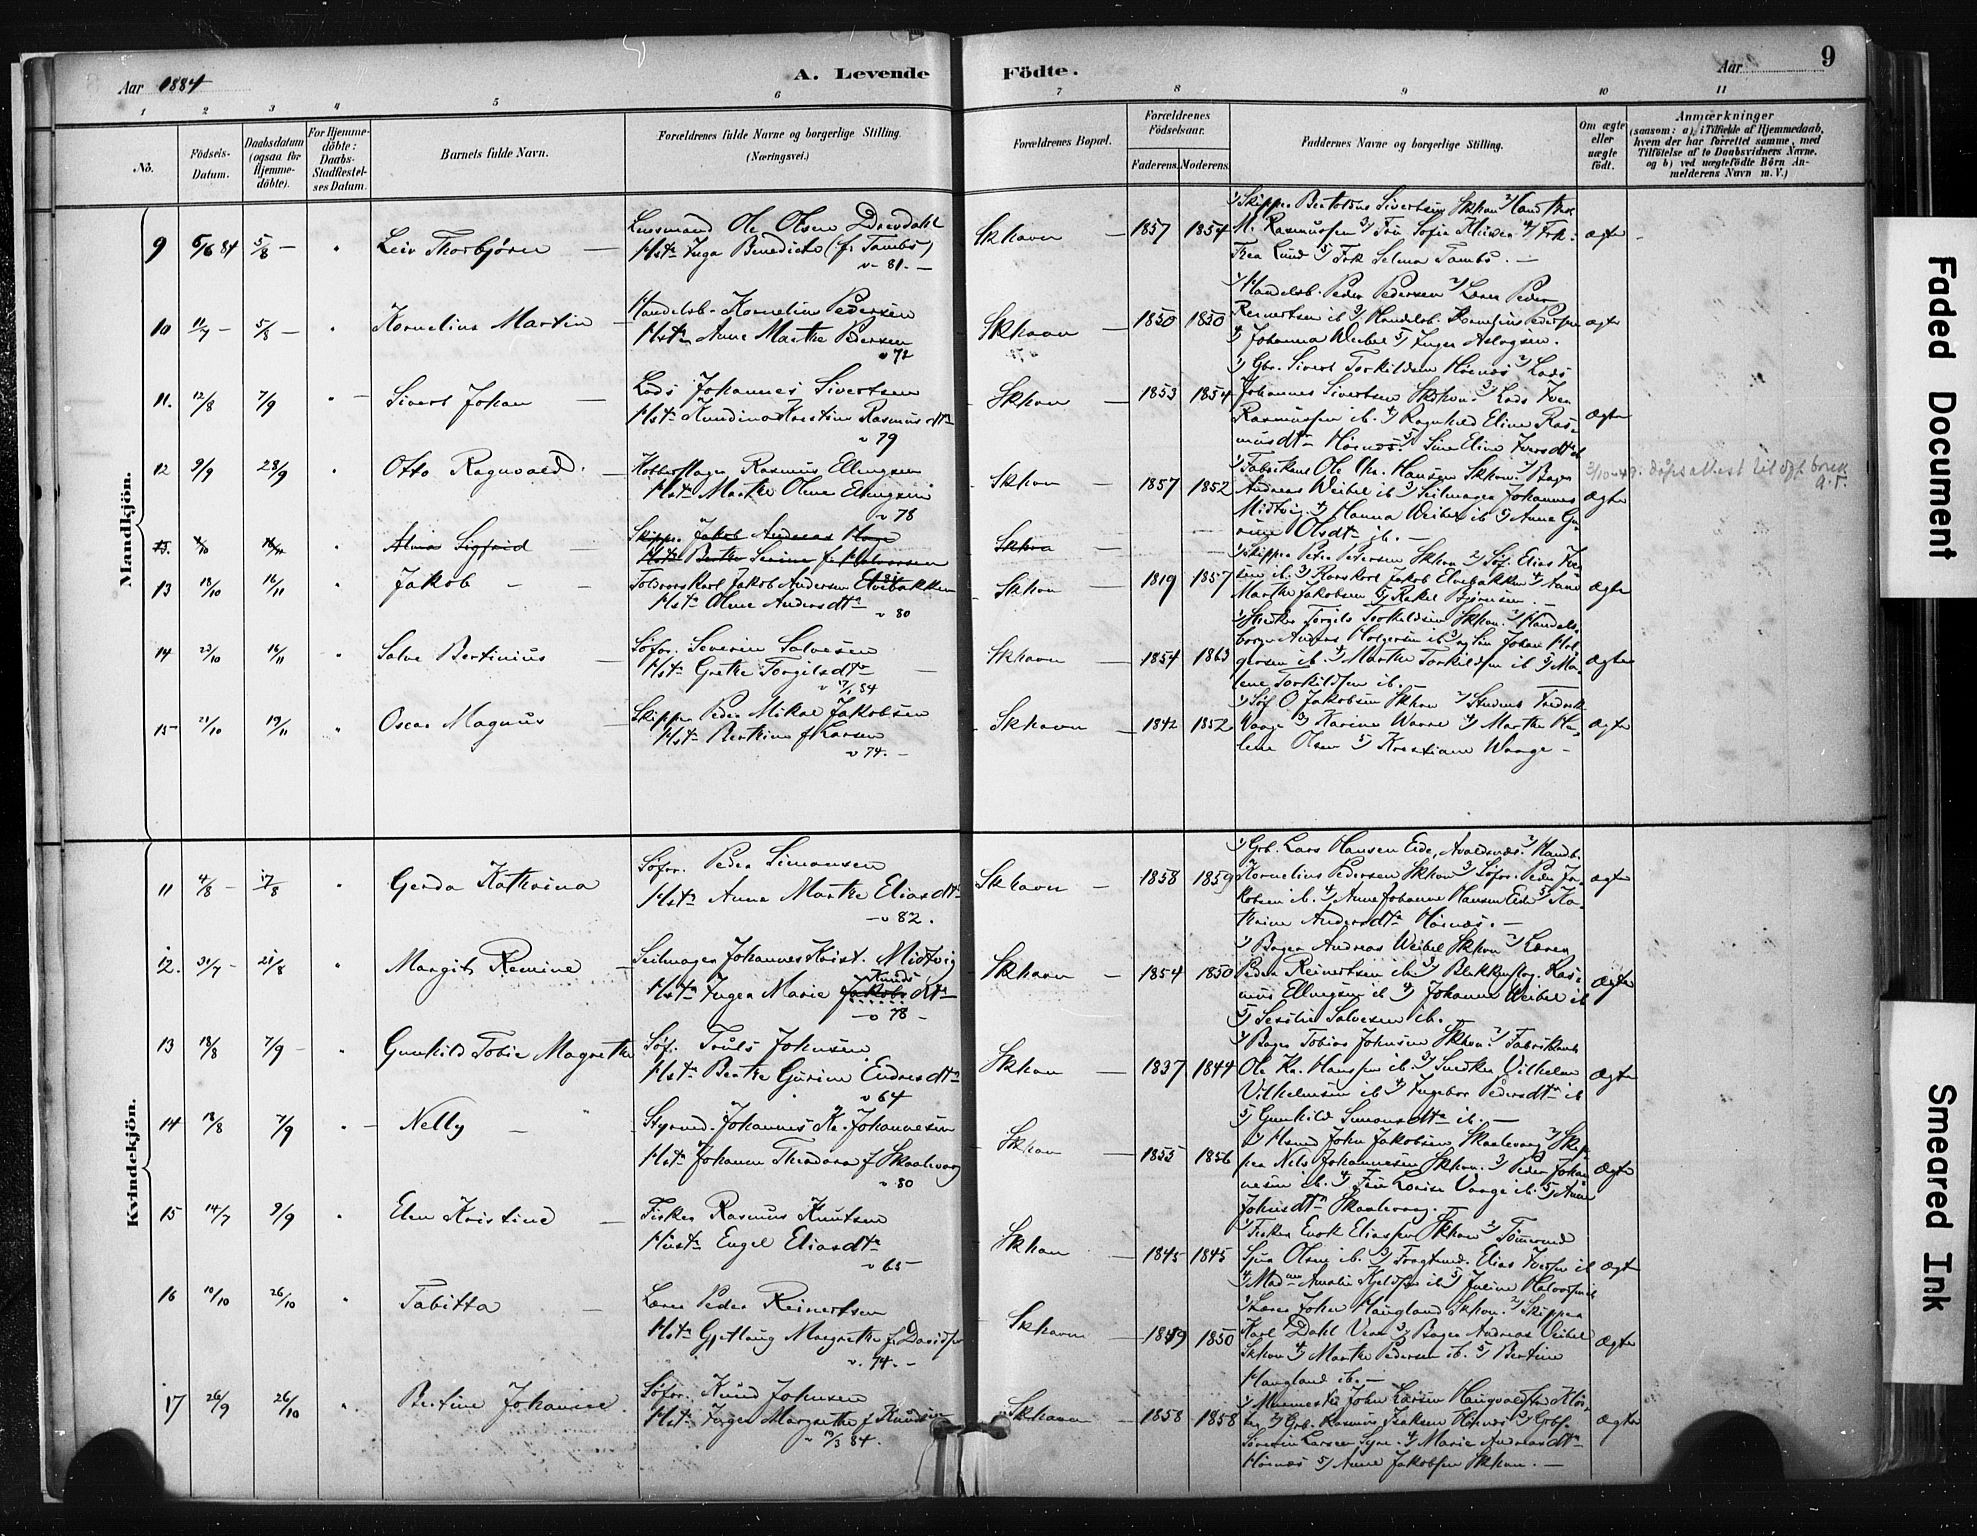 Aar 1884
A. Levende
Födte.
Aar
9
1 2 3 4 5 6 7 8 9 10 11
No.
Födsels-
Datum.
Daabsdatum
(ogsaa for
Hjemme-
döbte).
For Hjemme-
döbte:
Daabs-
Stadfæstel-
ses Datum.
Barnets fulde Navn.
Forældrenes fulde Navne og borgerlige Stilling.
(Næringsvei.)
Forældrenes Bopæl.
Forældrenes
Födselsaar.
Faderens. Moderens.
Faddernes Navne og borgerlige Stilling.
Om ægte
eller
uægte
födt.
Anmærkninger
(saasom: a) i Tilfælde af Hjemmedaab,
hvem der har forrettet samme, med
Tilföielse af to Daabsvidners Navne,
og b) ved uægtefödte Börn An-
melderens Navn m. V.)
Mandkjön.
9 6/6 84 5/8 — Leiv Thorbjörn —
Lensmand Ole Olsen
Hst. Inga Benedicte (f. Tambs)
v. 81. —
Skhavn — 1857 1854
1) Skipper Bertolomæus Sivertsen Skhavn
M. Rasmussen 3) Fru Sofie
Thea Lund 5) Frk Selma Tambs. —
Ægte
10 11/7 — 5/8 — Kornelius Martin —
Handelsb. Kornelius Pedersen
Hst. Anne Marthe Pedersen
v 72
Skhavn — 1850 1850
1) Handelsb. Peder Pedersen 2) Lærer Peder
Reinertsen ib 3) Handelsb. Kornelius Pedersen
4) Johanna Weibel 5) Inger Aslagsen.
Ægte
11. 12/8 7/9 Sivert Johan —
Lods Johannes Sivertsen
Hst. Gundine Kristine Rasmusdtr
v 79
Skhavn — 1853 1854
1) Gbr. Sivert Torkildsen Hösnæs 2) Lods
Johannes Sivertsen Skhavn 3) Lods Iver
Rasmussen ib. 4) Ragnhild Eline Ras-
musdtr Hösnæs 5) Sine Eline Iversdtr ib
Ægte
12 9/9 28/9 Otto Ragnvald. —
Kobberslager Rasmus Ellingsen
Hst. Marthe Olene Ellingsen
v 78
Skhavn — 1857 1852
1) Fabrikant Ole Chr. Hansen Skhavn 2) Bager
Andreas Weibel ib 3) Seilmager Johannes
Midtvig 4) Hanna Weibel ib 5) Anne Gu-
rine Olsdtr ib. —
Ægte
3/10-49: Dåpsattest til off. bruk
13. Alma Sigfrid —
Skipper Jakob Andreas Hage
Hst. Berthe Serine f. Halvorsen
Skhavn
13 18/10 16/11 Jakob — —
Toldrorskarl Jakob Andersen Elvebakken
Hst. Olene Andersdtr
v 80
Skhavn 1819 1857
1) Skipper Peder Pedersen Skhavn 2) Söf. Elias Iver-
sen ib. 3) Rorskarl Jakob Elvebakken 4) Anne
Marthe Jakobsen 5) Rakel Bjönsen —
Ægte
14 23/10 16/11 Salve Bertinius —
Söfar. Severin Salvesen
Hst. Grethe Torgilsdtr
v 17/1 84
Skhavn — 1854 1863
1) Snedker Torgils Torkildsen Skhavn 2) Handels-
borger Anders Holgersen ib 3) og Sön Johan Hol-
gersen ib. 4) Marthe Torkildsen ib 5) Ma-
lene Torkildsen ib.
Ægte
15 21/10 19/11 Oscar Magnus —
Skipper Peder Mikal Jakobsen
Hst. Berthine f. Larsen
v 74. —
Skhavn — 1842 1852
1) Söf O Jakobsen Skhavn 2) Student Fredrik
Waage 3) Karine Waage 4) Marthe He-
lene Olsen 5) Kristiane Waage —
Ægte
Kvindekjön.
11 4/8 — 17/8 Gerda Kathrina
Söfar. Peder Simonsen
Hst. Anna Marthe Eliasdtr
— v 82.
Skhavn — 1858 1859
1) Grb. Lars Hansen Eide, Avaldsnæs 2) Handb.
Kornelius Pedersen Skhavn 3) Söfar. Peder Ja-
kobsen ib. 4) Anne Johanne Hansen Eide 5) Ka-
thrine Andersdtr Hösnæs. —
Ægte
12. 31/7 — 21/8 Margit Remine —
Seilmager Johannes Krist. Midtvig
Knuds
Hst. Inger Marie Jakobsdtr
— v 78 —
Skhavn — 1854 1850
1) Bager Andreas Weibel Skhavn 2) Lærer
Peder Reinertsen ib 3) Blikkenslag. Ras-
mus Ellingsen ib 4) Johanne Weibel ib
5) Sesilie Salvesen ib.
Ægte
13 18/8 7/9 — Gunhild Tobie Magrethe
Söf. Truls Johnsen
Hst. Berthe Gurine Endresdtr
v 64
Skhavn — 1837 1844
1) Bager Tobias Johnsen Skhavn 2) Fabrikant
Ole Kr. Hansen ib. 3) Snedker Vilhelm
Vilhelmsen ib 4) Ingebor Pedersdtr ib
5) Gunhild Simonsdtr ib. —
Ægte
14 13/8 7/9 Nelly —
Styrmd. Johannes Kr. Johannesen
Hst. Johanne Theodora f Skaalevaag
v 80
Skhavn 1855 1856
1) Hsmd John Jakobsen Skaalevaag 2) Skip-
per Nils Johannesen Skhavn. 3) Peder Johan-
nesen ib. 4) Frk Lovise Vaage ib. 5) Anne
Johnsdtr Skaalevaag.
Ægte
15 14/7 9/9 Elen Kristine —
Fisker Rasmus Knutsen
Hust. Engel Eliasdtr
v 65
Skhavn — 1845 1845
1) Fisker Enok Eliassen Skhavn 2) Tömmermd
Sjur Olsen ib. 3) Fragtmd. Elias Iversen ib
4) Madam Amalie Kjeldsen ib 5) Juline Halvorsen ib
Ægte
16 10/10 26/10 Tabitta —
Lærer Peder Reinertsen
Hst. Gjetlaug Margrethe f. Davidsen
v. 74. —
Skhavn — 1849 1850
1) Lærer John Haugland Skhavn. 2) Skipper
Karl Dahl 3) Bager Andreas Veibel
Skhavn 4) Marthe Pedersen ib. 5) Bertine
Haugland ib. —
Ægte
17 26/9 26/10 Bertine Johanne.
Söfar. Knud Johnsen
Hst. Inger Margrethe f. Knudsen
v 19/3 84.
Skhavn — 1858 1858
2) Grb. Rasmus Isaksen Hösnæs
Severin Larsen 4) Marie Andreasdtr
Hösnæs 5) Anne Jakobsen Skhavn. —
Ægte
Faded Document
Smeared Ink